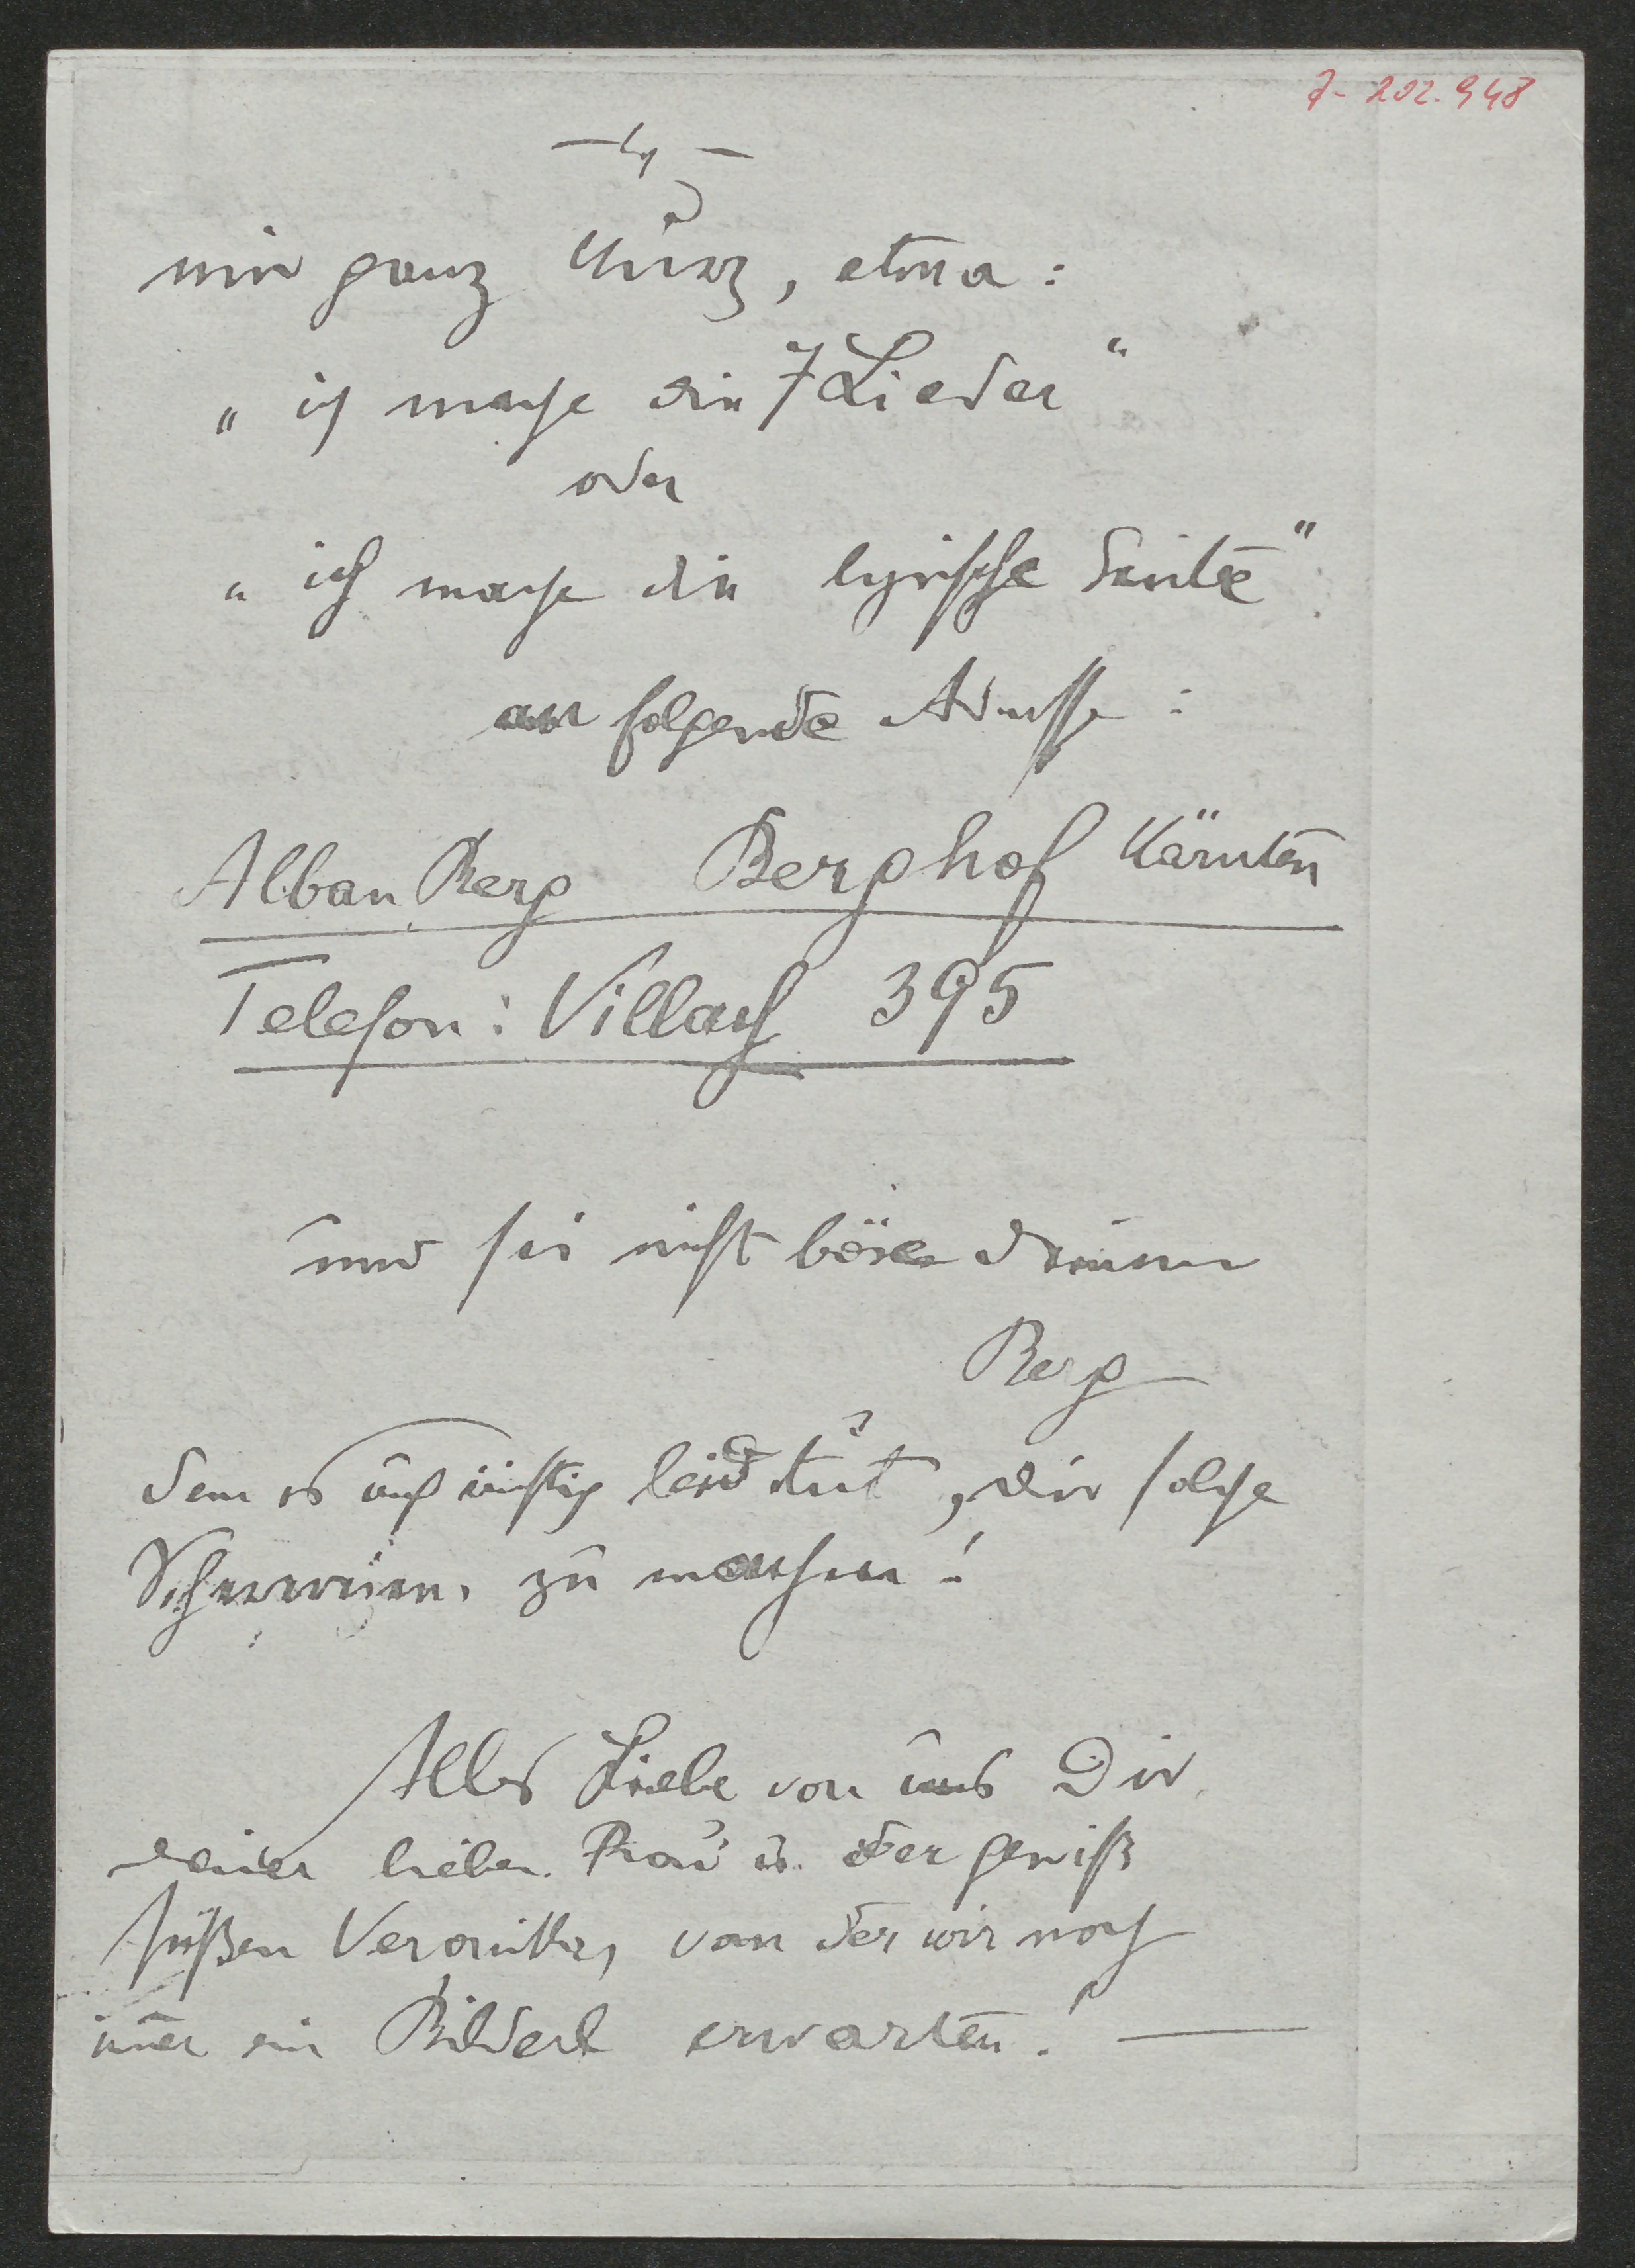 7-202.948
– 4 –
mir ganz kurz, etwa:
„ich mache die 7 Lieder“
oder
„ich mache die lyrische Suite“
an folgende Adresse:
Alban Berg Berghof Kärnten
Telefon: Villach 395
und sei nicht böse Deinem
Berg
dem es aufrichtig leid tut, dir solche
zu machen!
Alles Liebe von uns Dir,
deiner lieben Frau u. der gewiß
süßen Veronika, von der wir noch
im̄er ein Bilderl erwarten! —